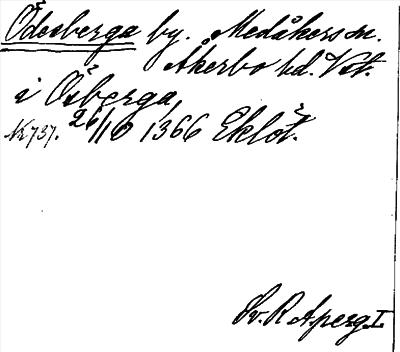 Ödesberga by. Medåkers sn.
Åkerbo hd. Vst.
i Ösberga
N 737. 26/10 1366 Eklöt.
Sv. R. A. perg. I.